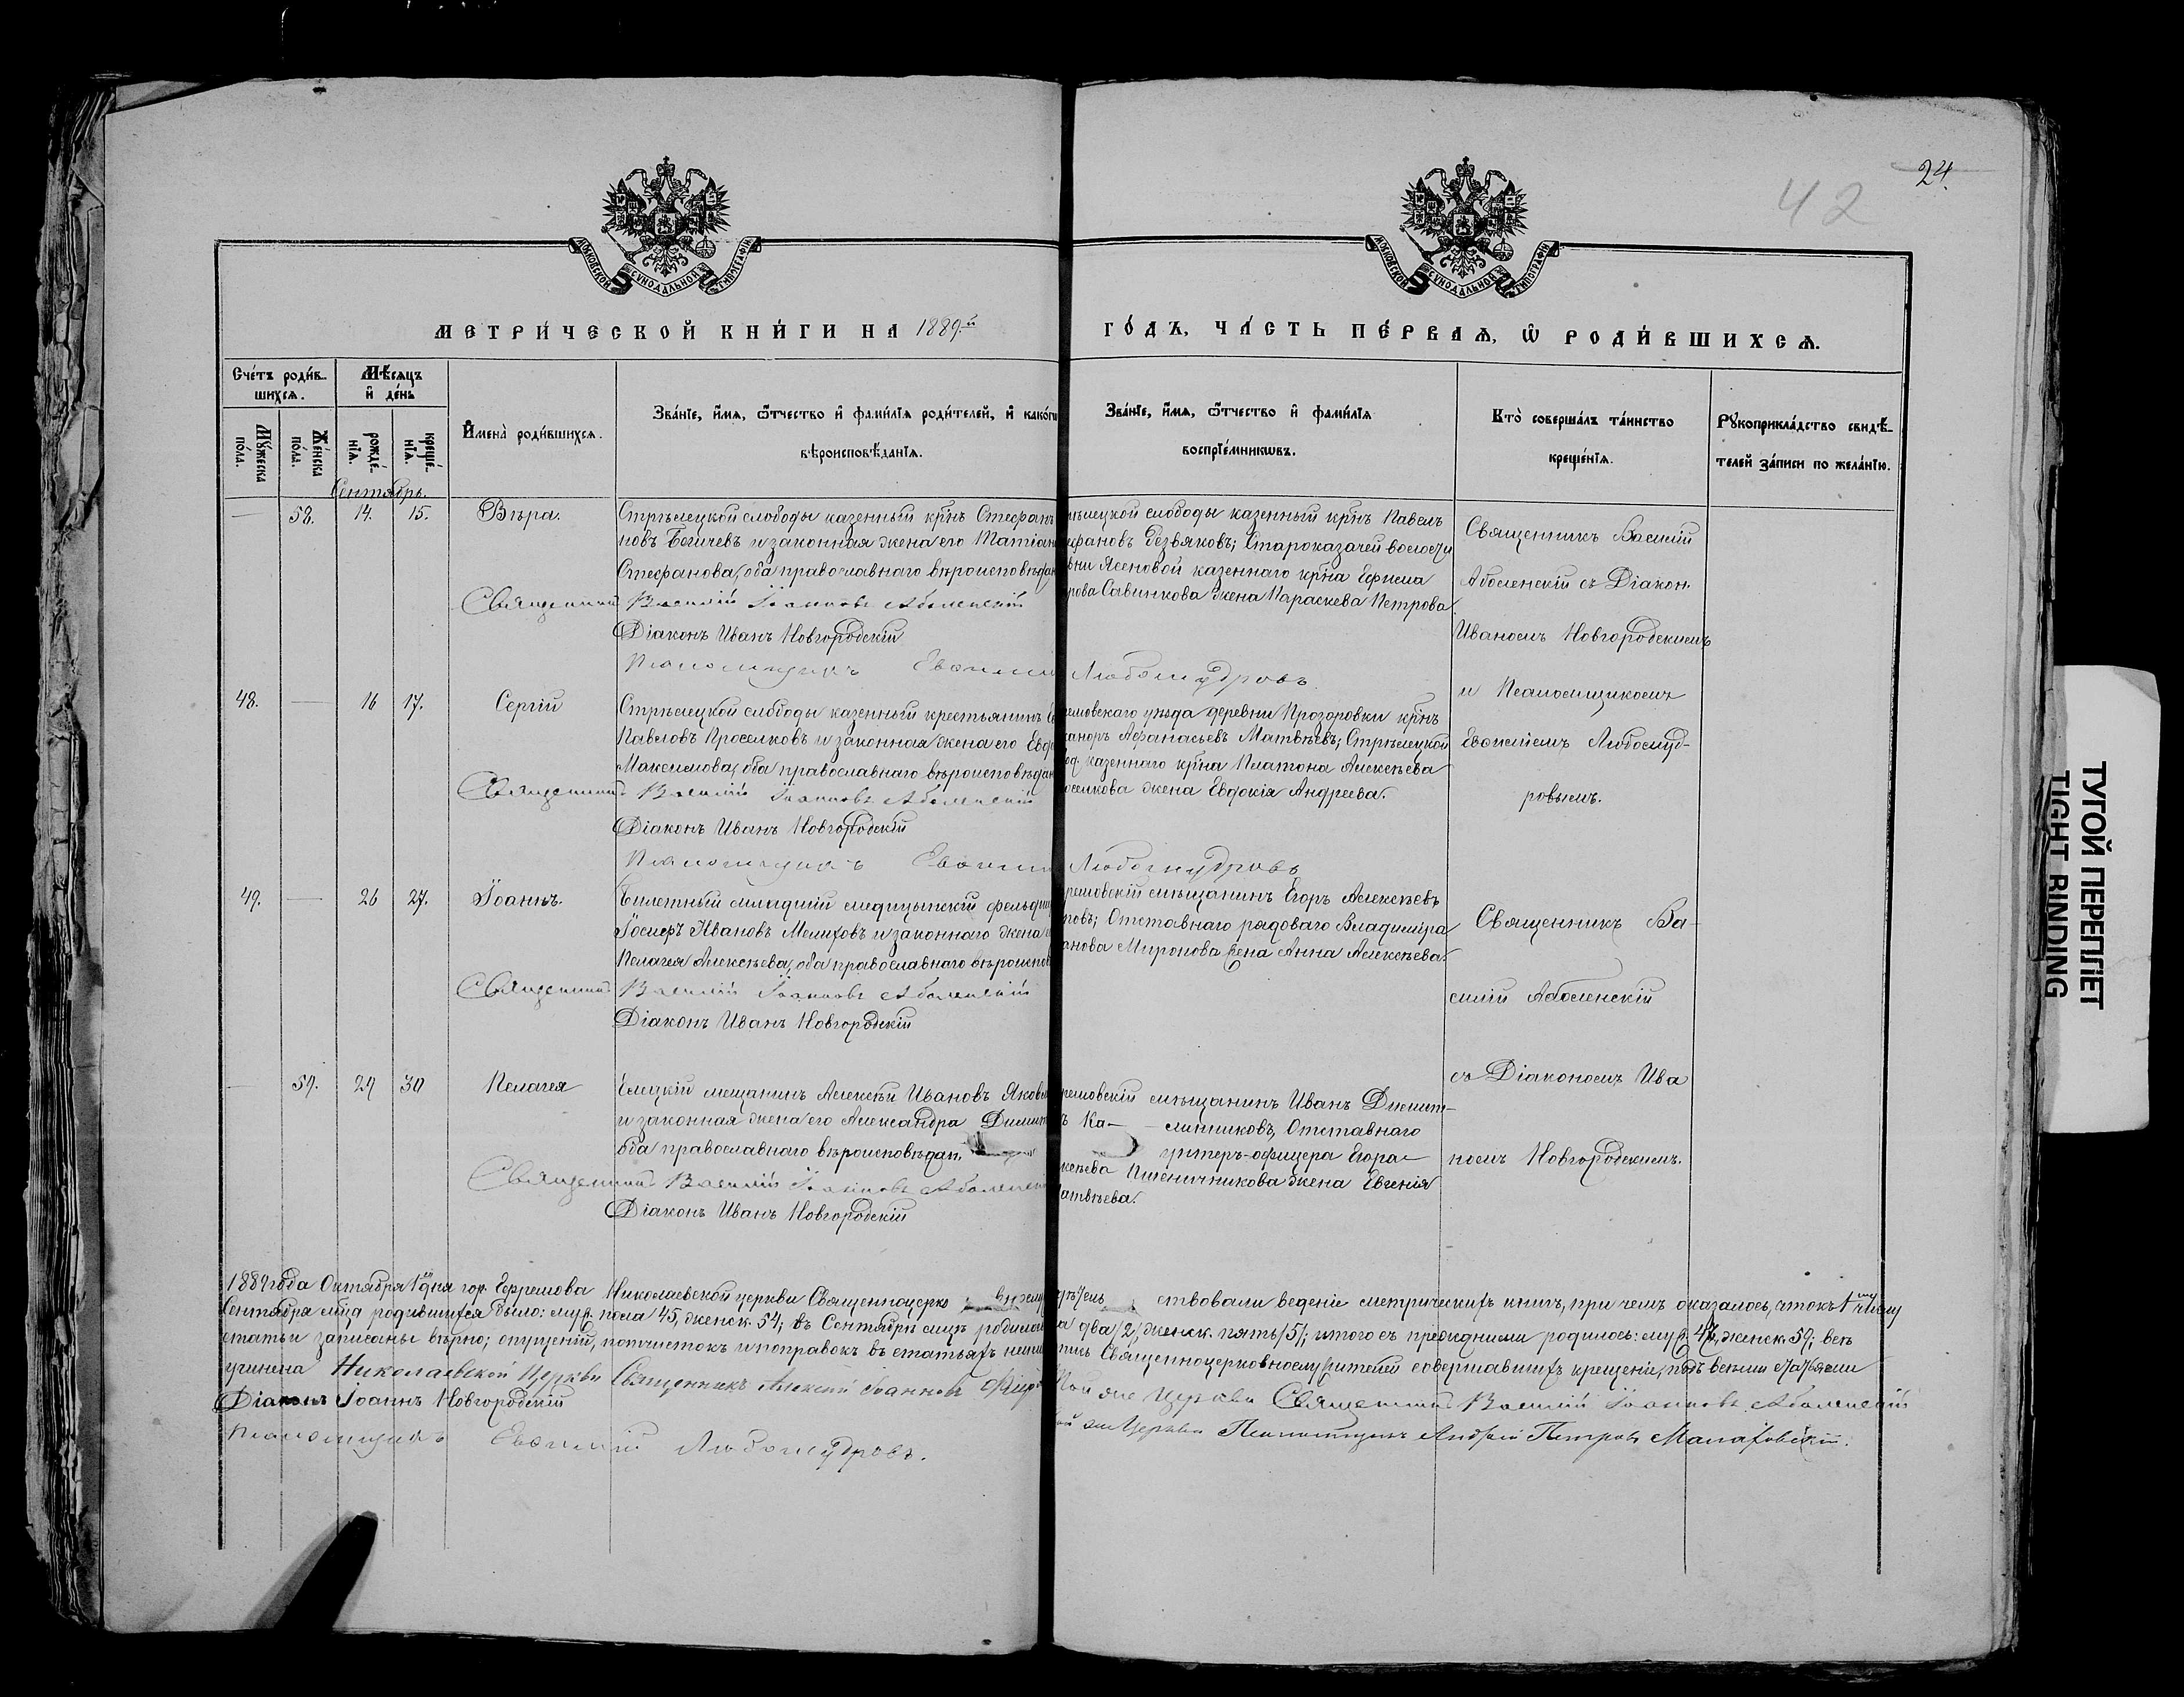 24.
42
МОСКОВСКОЙ СУНОДАЛЬНОЙ ТИПОГРАФІИ
МОСКОВСКОЙ СУНОДАЛЬНОЙ ТИПОГРАФІИ
МЕТРИ́ЧЕСКОЙ КНИ́ГИ НА 1889й
ГО́ДЪ, ЧА́СТЬ ПЕ́РВАѦ, Ѡ҆ РОДИ́ВШИХСѦ.
Сче́тъ роди́в-
шихсѧ.
Мѣ́сѧцъ
и҆ де́нь
Мꙋ́жеска
по́ла.
Же́нска
по́ла.
рожде́-
нїѧ.
креще́-
нїѧ.
И҆мена̀ роди́вшихсѧ.
Зва́нїе, и҆́мѧ, ѻ҆́тчество и҆ фами́лїѧ роди́телей, и҆ како́гѡ
вѣроисповѣ́данїѧ.
Зва́нїе, и҆́мѧ, ѻ҆́тчество и҆ фами́лїѧ
воспрїе́мникѡвъ.
Кто̀ соверша́лъ та́инство
креще́нїѧ.
Рꙋкоприкла́дство свидѣ́-
телей за́писи по жела́нїю.
Сентябрь.
— 58. 14. 15. Вѣра.
Стрѣлецкой слободы казенный кр҃нъ Стефанъ
новъ Богичевъ и законная жена его Матіан
Стефанова, оба православнаго вѣроисповѣдан
Священникъ Василій Іоанновъ Аболенскій
Діаконъ Иванъ Новгородскій
Псаломщикъ Евѳимій Любомудровъ
ѣлецкой слободы казенный кр҃нъ Павелъ
ефановъ Безвяковъ; Староказачей волости
вни Ясеновой казеннаго кр҃на Ефима
рова Савинкова жена Параскева Петрова.
Священникъ Василій
Аболенскій съ Діакон.
Иваномъ Новгородскимъ
и Псаломщикомъ
Евѳиміемъ Любомуд-
ровымъ.
48. — 16 17. Сергій
Стрѣлецкой слободы казенный крестьянинъ
Павловъ Проселковъ и законная жена его Евд
Максимова, оба православнаго вѣроисповѣдан
Священникъ Василій Іоанновъ Аболенскій
Діаконъ Иванъ Новгородскій
Псаломщикъ Евѳимій Любомудровъ
ремовскаго уѣзда деревни Прозоровки кр҃нъ
каноръ Аѳанасьевъ Матвѣевъ; Стрѣлецкой
од. казеннаго кр҃на Платона Алексѣева
оселкова жена Евдокія Андреева.
49. — 26 27. Іоаннъ.
Билетный младшій медицынскій фельдш
Іосифъ Ивановъ Мелиховъ и законнаго жена
Пелагея Алексѣева, оба православнаго вѣроиспов
Священникъ Василій Іоанновъ Аболенскій
Діаконъ Иванъ Новгородскій
ремовскій мѣщанинъ Егоръ Алексѣевъ
ровъ; Отставнаго рядоваго Владиміра
анова Миронова жена Анна Алексѣева.
Священникъ Ва-
силій Аболенскій
съ Діакономъ Ива
номъ Новгородскимъ.
— 59. 29 30 Пелагея
Елецкій мещанинъ Алексѣй Ивановъ Яковл
и законная жена его Александра Димит
оба православнаго вѣроисповѣдан.
Священникъ Василій Іоанновъ Аболенск
Діаконъ Иванъ Новгородскій
ремовскій мѣщанинъ Иванъ Димит-
ъ Ка- линниковъ, Отставнаго
унтеръ-офицера Егора
ксѣева Пшеничникова жена Евгенія
атвѣева.
1889 года Октября 1 дня гор. Ефремова Николаевской церкви Священноцерко
ствовали веденіе метрическихъ книгъ, при чемъ оказалось, что къ 1 числу
Сентября м҃ца родившихся было: муж. пола 45, женск. 54; въ Сентябрѣ м҃цѣ родилось
а два /2/, женск. пять /5/; итого съ прежними родилось: муж. 47, женск. 59; всѣ
статьи записаны вѣрно; опущеній, подчистокъ и поправокъ въ статьяхъ
пись Священноцерковнослужителей совершавшихъ крещеніе, подъ всѣми статьями
учинена Николаевской Церкви Священникъ Алексій Іоанновъ
Той же Церкви Священникъ Василій Іоанновъ Аболенскій
Діаконъ Іоаннъ Новгородскій
ой же Церкви Псаломщикъ Андрей Петровъ Малаховскій.
Псаломщикъ Евѳимій Любомудровъ.
ТУГОЙ ПЕРЕПЛЕТ
TIGHT BINDING